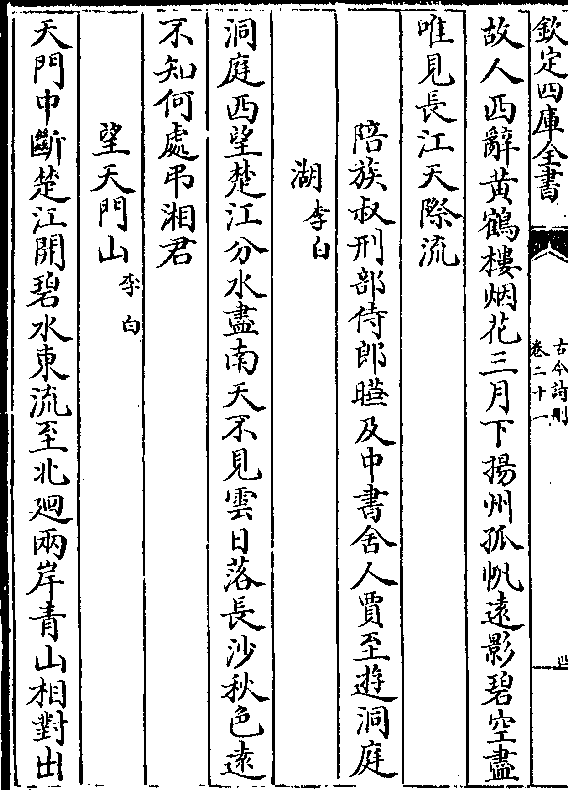 欽定四庫全書
古今詩刪
卷二十一
故人西辭黃鶴樓烟花三月下揚州孤帆遠影碧空盡
唯見長江天際流
陪族叔刑部侍郎曄及中書舍人賈至遊洞庭
湖李白
洞庭西望楚江分水盡南天不見雲日落長沙秋色遠
不知何處弔湘君
望天門山李白
天門中斷楚江開碧水東流至北廻兩岸青山相對出